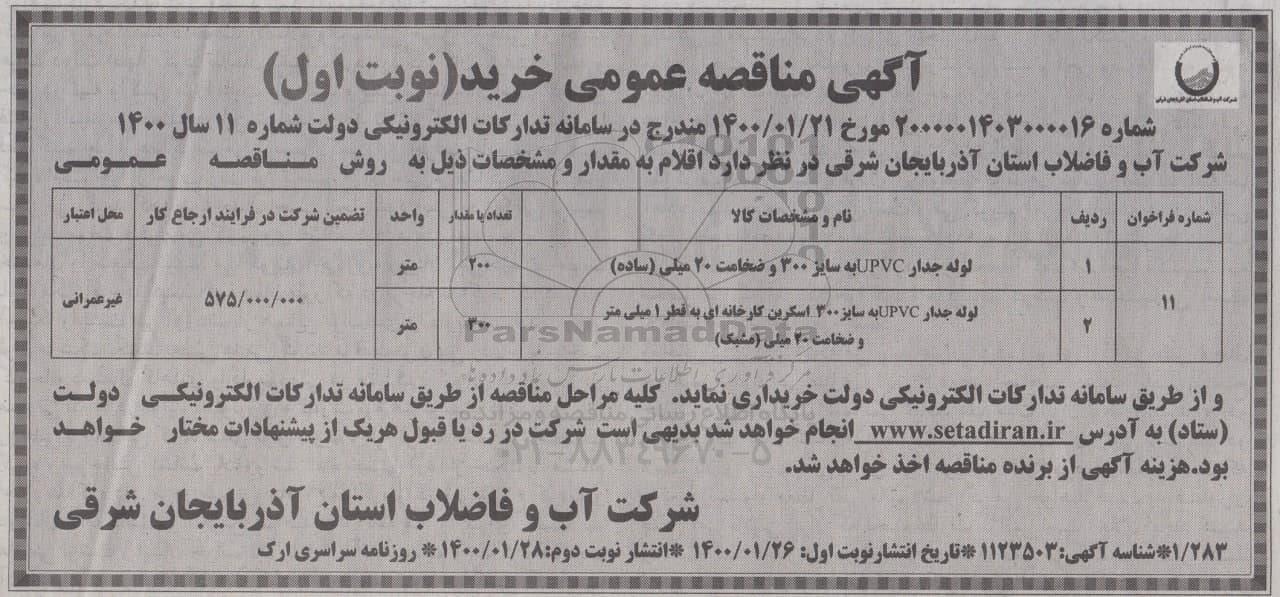 آگهی مناقصه عمومی خرید(نوبت اول)
شرکت آب و فاضلاب استان آذربایجان شرقی
شماره ۲۰۰۰۰۰۱۴۰۳۰۰۰۰۱۶ مورخ ۱۴۰۰/۰۱/۲۱ مندرج در سامانه تدارکات الکترونیکی دولت شماره ۱۱ سال ۱۴۰۰
شرکت آب و فاضلاب استان آذربایجان شرقی در نظر دارد اقلام به مقدار و مشخصات ذیل به روش مناقصه عمومی
شماره فراخوان ردیف نام و مشخصات کالا تعداد یا مقدار واحد تضمین شرکت در فرایند ارجاع کار محل اعتبار
۱۱ ۱ لوله جدار UPVCبه سایز ۳۰۰ و ضخامت ۲۰ میلی (ساده) ۲۰۰ متر ۵۷۵/۰۰۰/۰۰۰ غیرعمرانی
۲ لوله جدار UPVCبه سایز ۳۰۰ اسکرین کارخانه ای به قطر ۱ میلی متر
و ضخامت ۲۰ میلی (مشبک) ۳۰۰ متر
و از طریق سامانه تدارکات الکترونیکی دولت خریداری نماید. کلیه مراحل مناقصه از طریق سامانه تدارکات الکترونیکی دولت
(ستاد) به آدرس www.setadiran.ir انجام خواهد شد بدیهی است شرکت در رد یا قبول هریک از پیشنهادات مختار خواهد
بود.هزینه آگهی از برنده مناقصه اخذ خواهد شد.
شرکت آب و فاضلاب استان آذربایجان شرقی
۱/۲۸۳*شناسه آگهی: ۱۱۲۳۵۰۳*تاریخ انتشارنوبت اول: ۱۴۰۰/۰۱/۲۶ *انتشار نوبت دوم:۱۴۰۰/۰۱/۲۸* روزنامه سراسری ارک
ParsNamadData
مرکز فرآوری اطلاعات پارس نماد داده ها
پایگاه اطلاع رسانی مناقصه و مزایده
۰۲۱-۸۸۳۴۹۶۷۰-۵